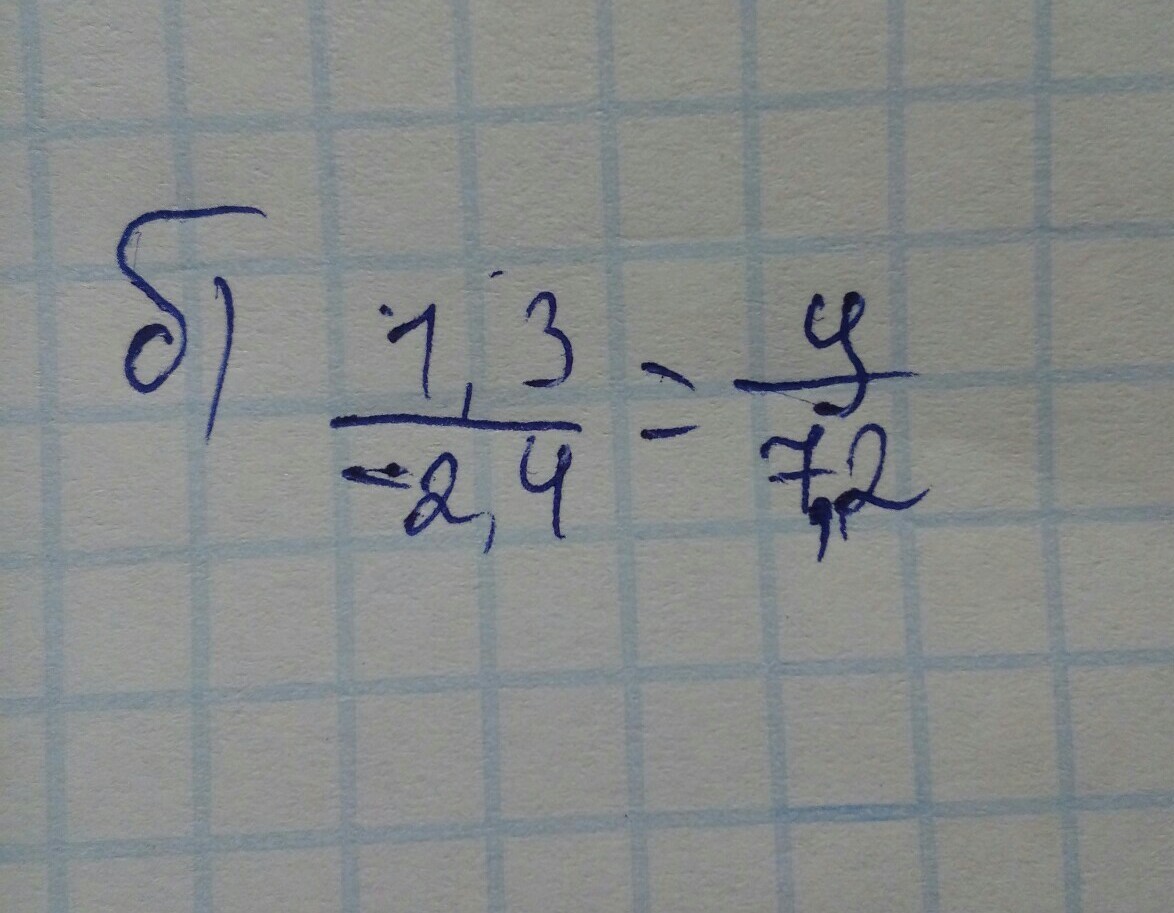 б) 1,3/-2,4 = y/7,2